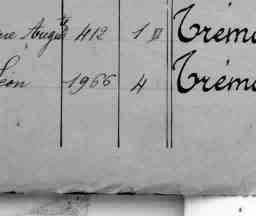 Augte 412 1 Trém
Léon 1966 4 Trém